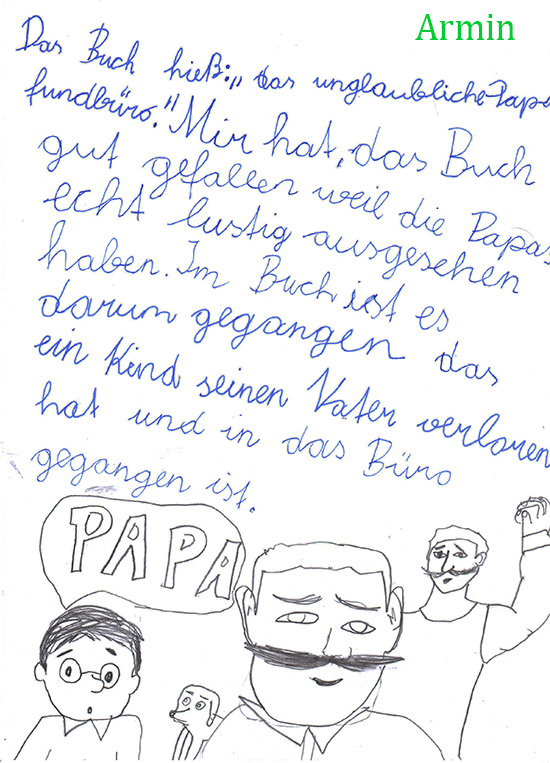 Armin
Das Buch hieß: „das unglaubliche Papa
fundbüro." Mir hat, das Buch
gut gefallen weil die Papas
echt lustig ausgesehen
haben. Im Buch ist es
darum gegangen das
ein Kind seinen Vater verloren
hat und in das Büro
gegangen ist.
PAPA